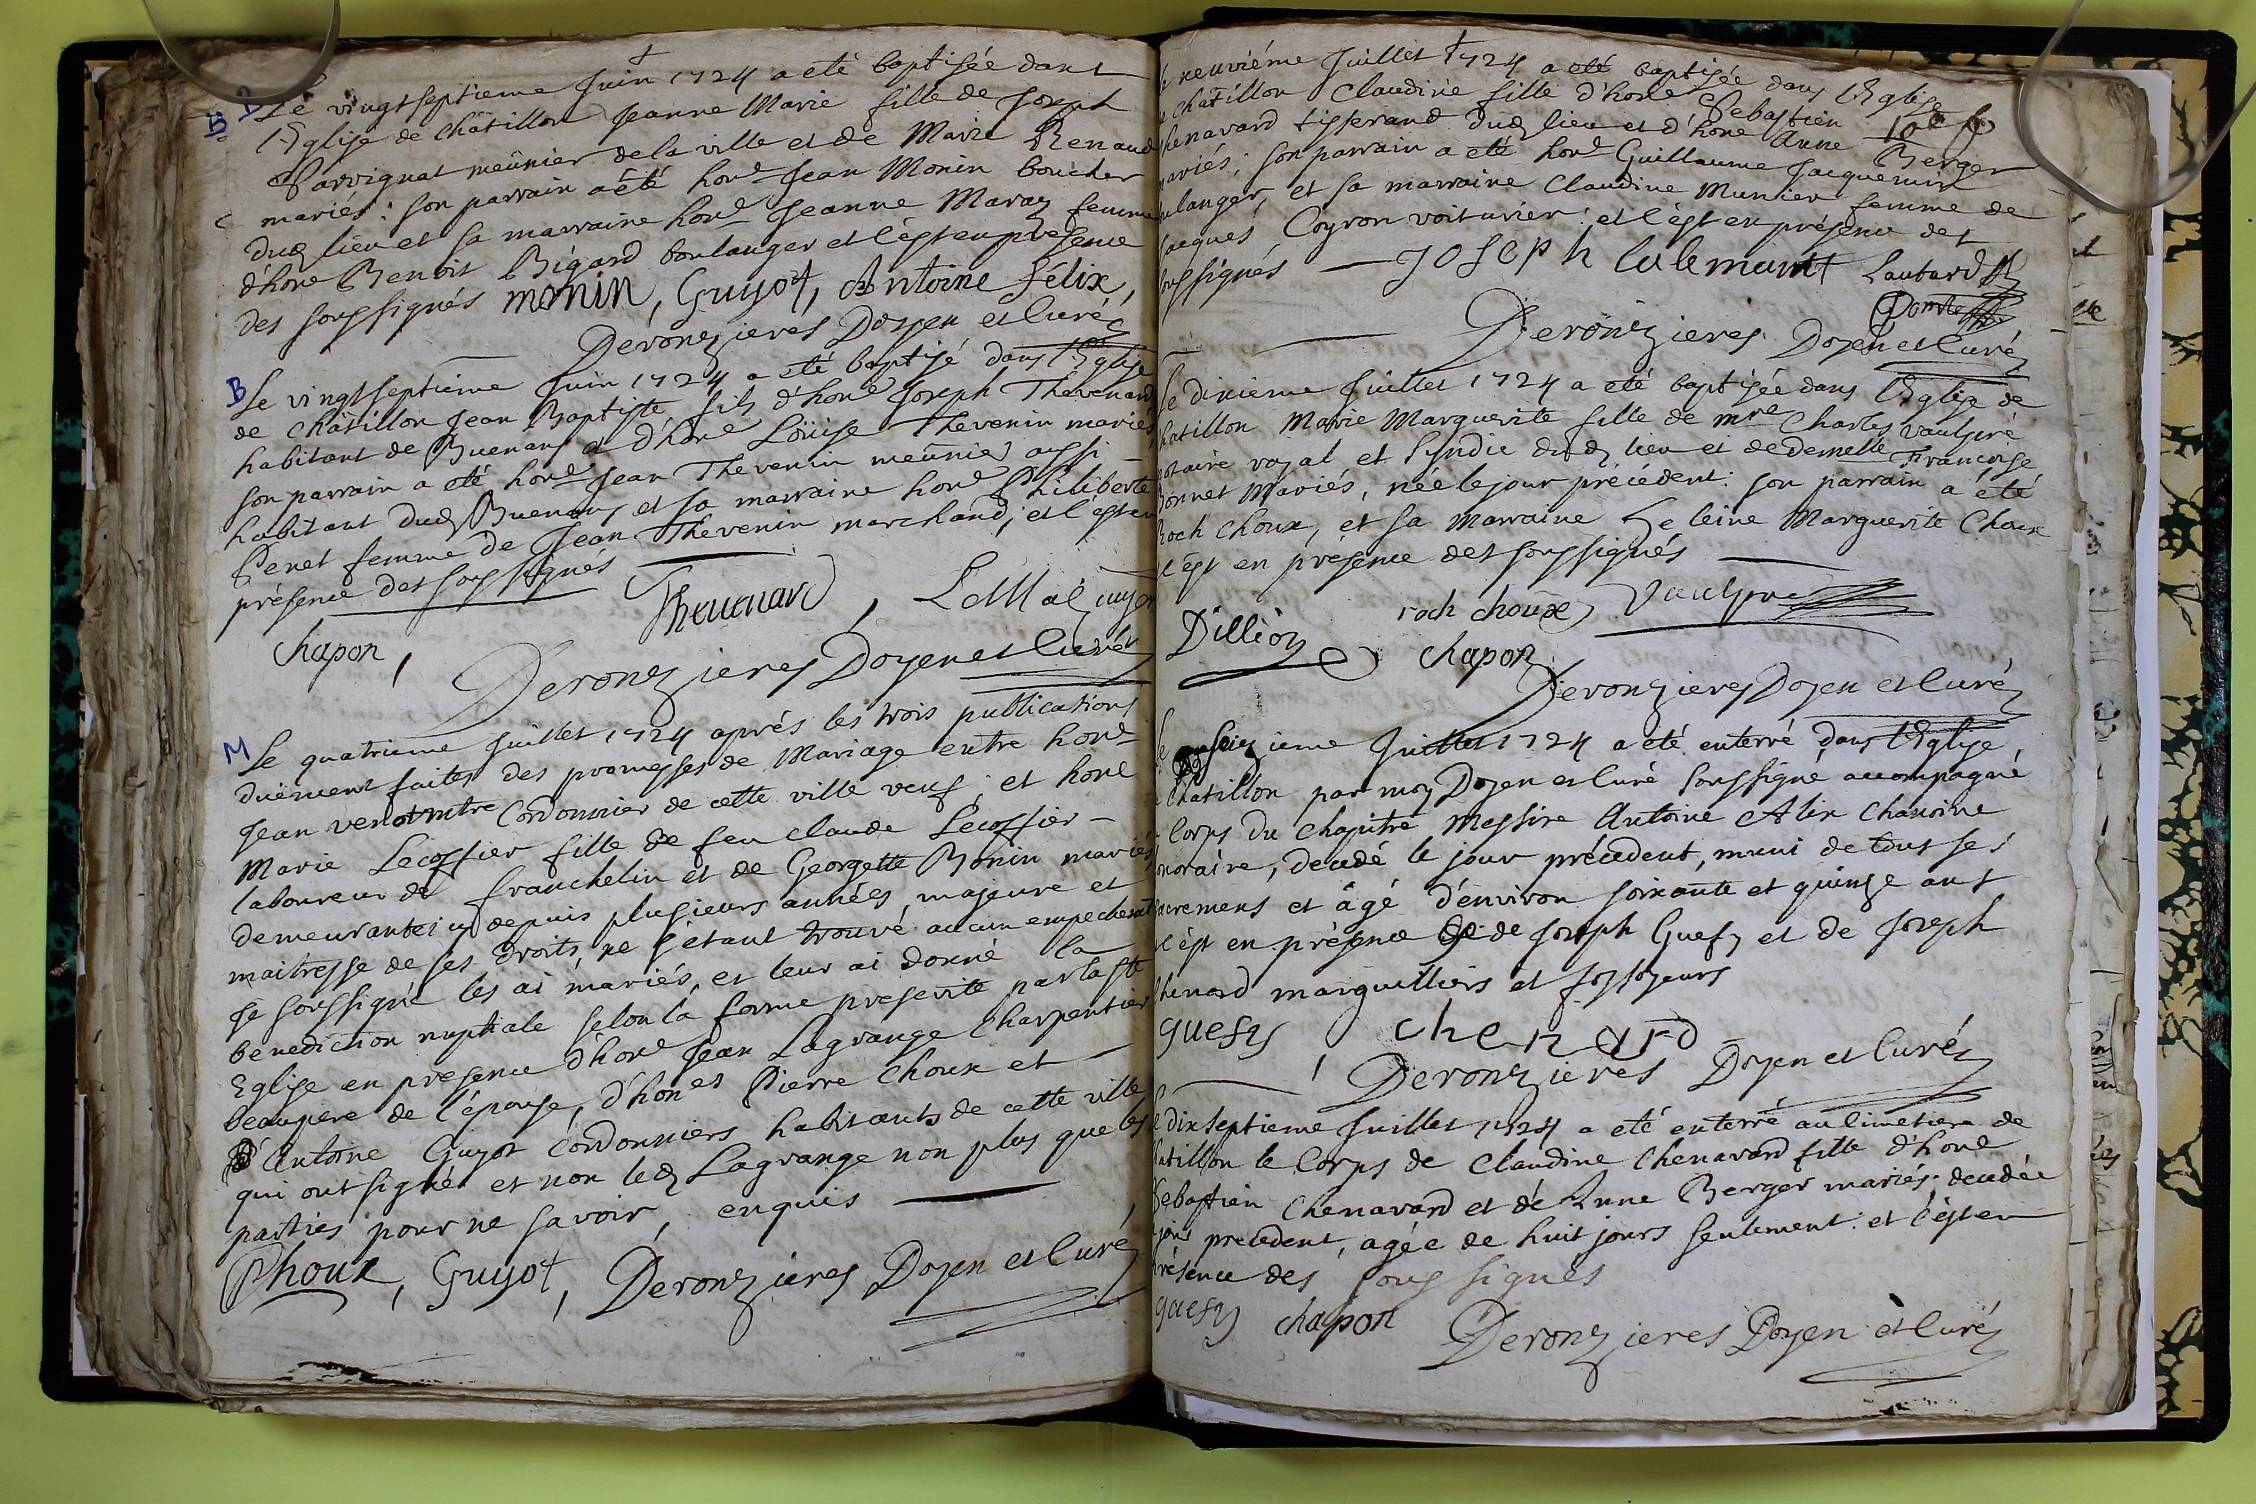 Le vingtseptieme Juin 1724 a eté baptisée dans
l'Eglise de châtillon Jeanne Marie fille de Joseph
Parvignat meûnier de la ville et de Marie Renaud
mariés: son parrain a été hon.e Jean Monin boucher
dud lieu et sa marraine hon.e Jeanne Maray femme
d'hone Benoit Bigard boulanger et c'est en présence
des soussignés monin, Guyot, Antoine félix,
Deronzieres Doyen et Curé
B Le vingtseptieme Juin 1724 a eté baptisé dans l'Eglise
de Châtillon Jean Baptiste fils d'hon.e Joseph Thevenard
habitant de Buenans et d'hon.e Loüise Thevenin mariés
son parrain a eté hon.e Jean Thevenin meûnier aussi
habitant dud Buenans et sa marraine hon.e Philiberte
Penet femme de Jean Thevenin marchand, et c'est en
présence des soussignés
Thevenard,
chapon, Deronzieres Doyen et Curé
M Le quatrieme Juillet 1724 aprés les trois publications
duëment faites des promesses de Mariage entre hon.e
Jean venot mtre Cordonnier de cette ville veuf, et hone
Marie Lecossier fille de feu claude Lecossier
laboureur de franchelin et de Georgette Bonin mariés
demeurante icy depuis plusieurs années, majeure et
maitresse de ses droits, ne s'étant trouvé aucun empechemt
Je soussigné les ai mariés, et leur ai donné la
benediction nuptiale selon la forme prescrite par la Ste
Eglise en presence d'hon.e Jean Lagrange Charpentier
beaupere de l'épouse, d'hon.es Pierre Choux et
d'Antoine Guyot Cordonniers habitants de cette ville
qui ont signé et non led Lagrange non plus que les
parties pour ne savoir, enquis
Phoux, Guyot, Deronzieres Doyen et Curé
le neuviéme Juillet 1724 a eté baptisée dans l'Eglise
chatillon Claudine fille d'hone Sebastien
chenavard tisserand dud lieu et d'hone Anne Berger
mariés; son parrain a eté hon.e Guillaume Jacquemin
boulanger, et sa marraine Claudine Munier femme de
Jacques Coyron voiturier: et c'est en présence des
soussignés Joseph lalemant Laubard
Deronzieres Doyen et Curé
Le dixieme Juillet 1724 a eté baptisée dans l'Eglise de
chatillon Marie Marguerite fille de mre Charles Vaulpré
notaire royal et Syndic dud lieu et de demelle Francoise
Bonnet Mariés, née le jour précédent: son parrain a été
Roch choux, et sa marraine Heleine Marguerite Choux
et c'est en présence des soussignés
roch choux, Vaulpré
Dillion chapon
Deronzieres Doyen et Curé
Le seizieme Juillet 1724 a eté enterré dans l'Eglise
chatillon par moy Doyen et Curé soussigné accompagné
Corps du chapitre, Messire Antoine Alix Chanoine
honoraire, decedé le jour précedent, muni de tous ses
sacremens et âgé d'environ soixante et quinze ans
et c'est en présence de de Joseph Guesy et de Joseph
Chenard marguilliers et fossoyeurs
guesy, chenard
Deronzieres Doyen et Curé
Le dixseptieme Juillet 1724 a eté enterré au Cimetiere de
chatillon le Corps de Claudine Chenavard fille d'hone
Sebastien Chenavard et de Anne Berger mariés: decedée
jour precedent, agée de huit jours seulement: et c'est en
présence des soussignés
guesy chapon Deronzieres Doyen et Curé